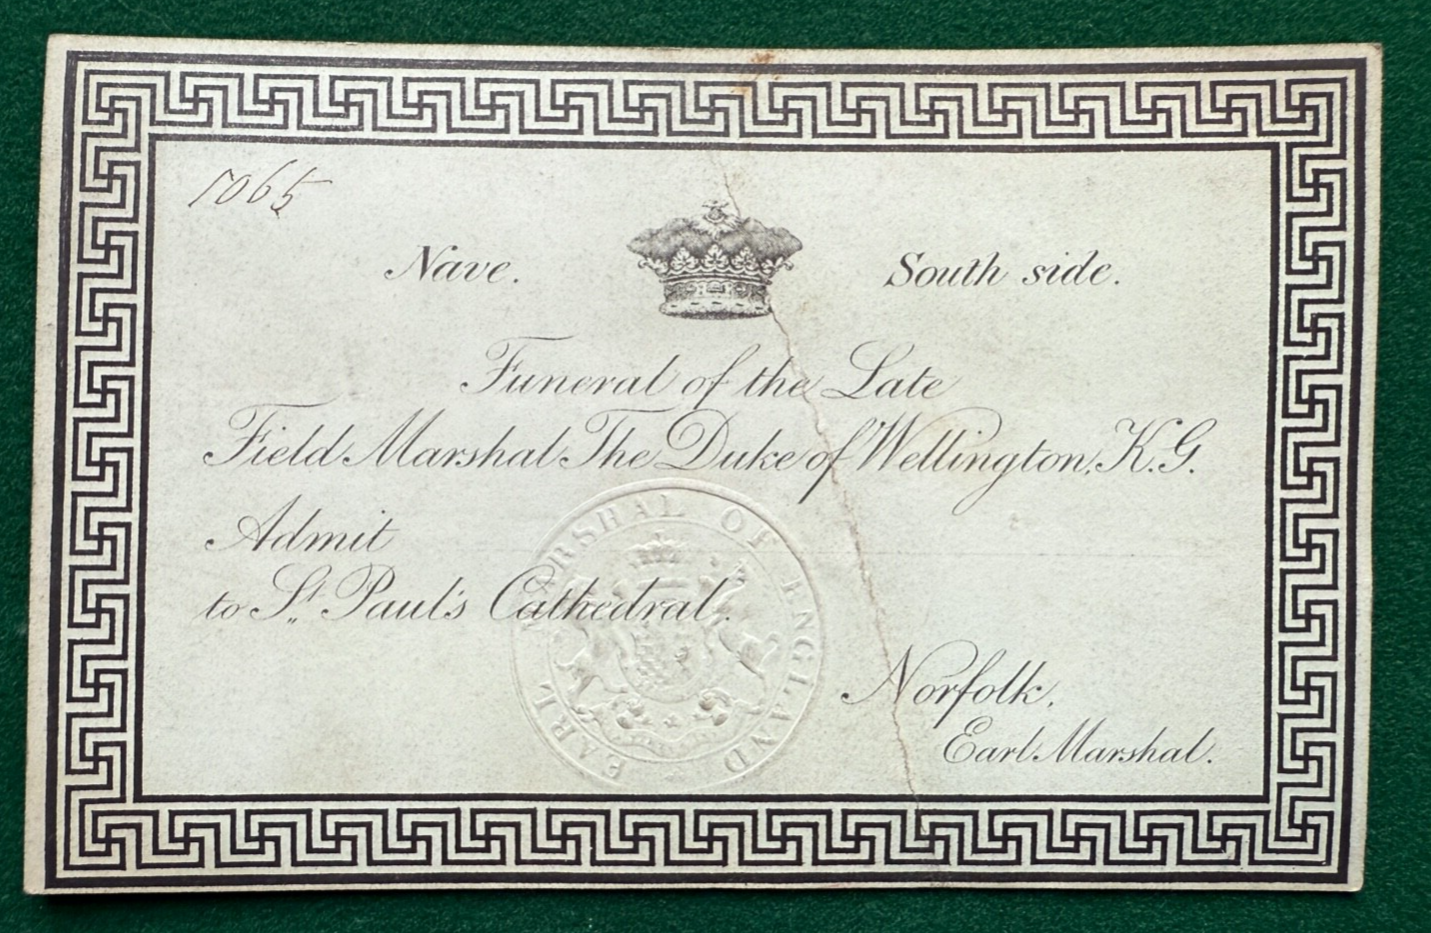 1065
Nave.
South side.
Funeral of the Late
Field Marshal The Duke of Wellington, K.G.
Admit
to St. Paul's Cathedral.
EARL MARSHAL OF ENGLAND
Norfolk,
Earl Marshal.